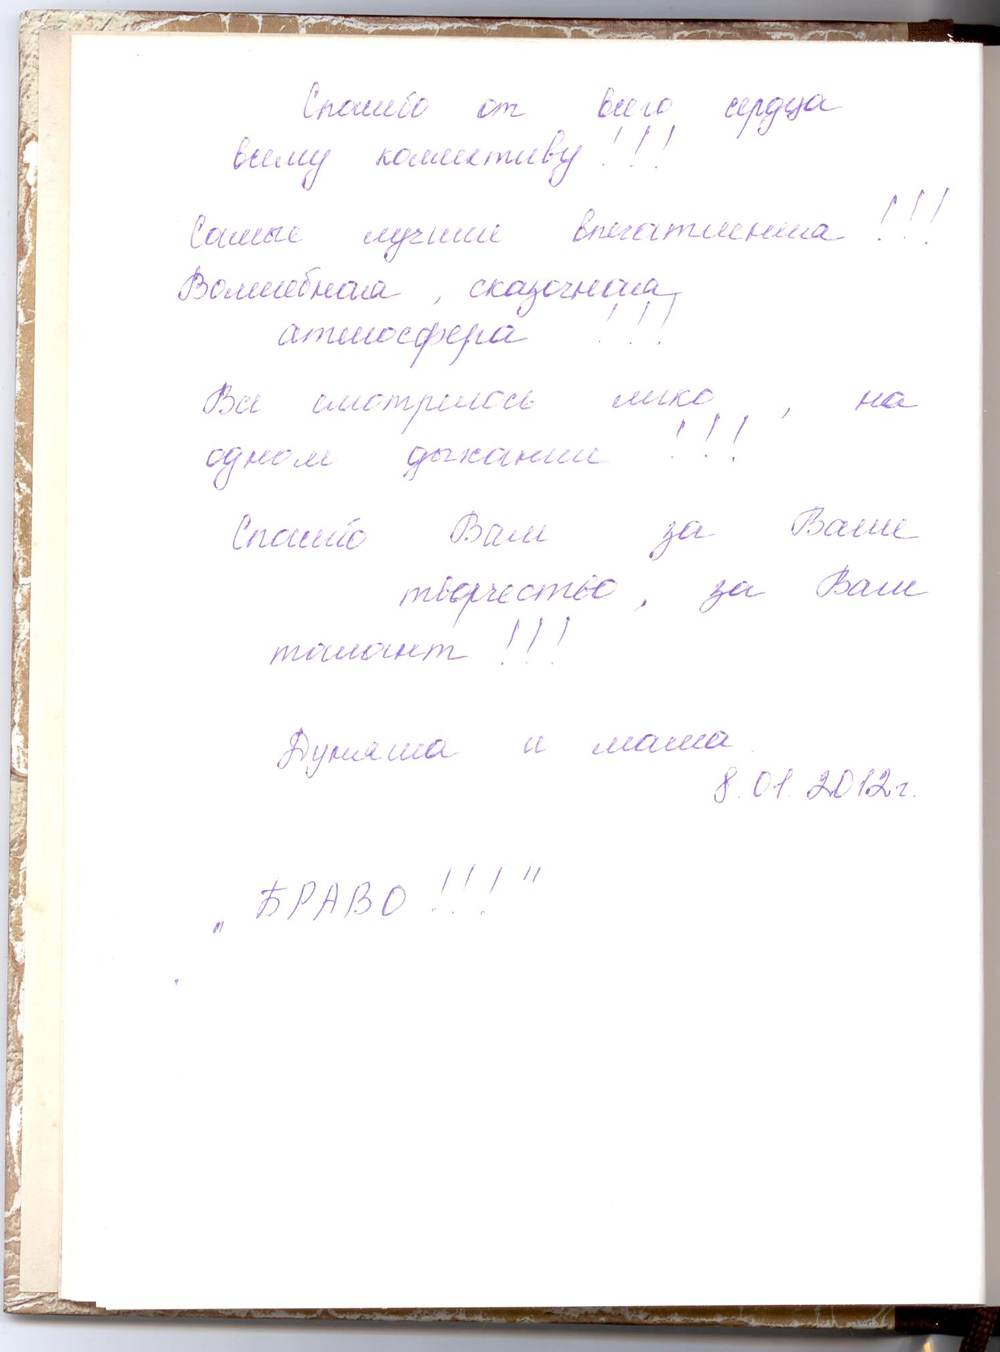 Спасибо от всего сердца
всему коллективу!!!
Самые лучшие впечатления!!!
Волшебная, сказочная
атмосфера!!!
Все смотрелось легко, на
одном дыхании!!!
Спасибо Вам за Ваше
творчество, за Ваш
талант!!!
Дуняша и мама
8.01.2012г.
„БРАВО!!!"